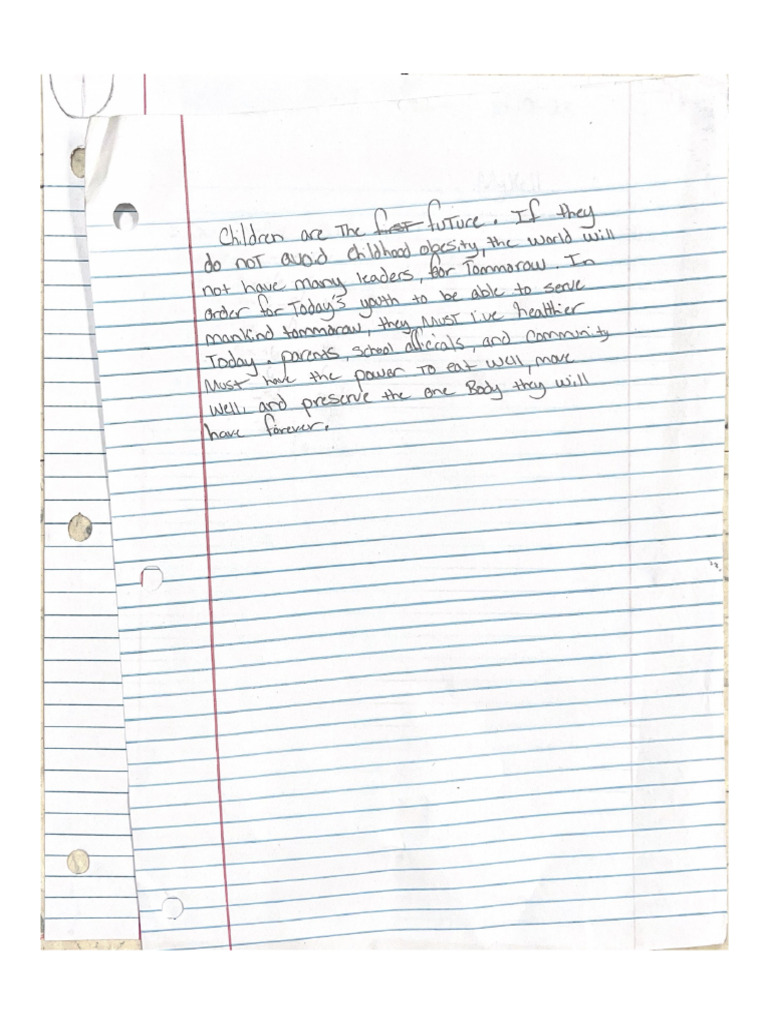 Children are The future. If they
do not avoid childhood obesity, the world will
not have many leaders, for Tommoraw. In
order for Today's youth to be able to serve
mankind tommoraw, they Must live healthier
Today. parents, school officials, and community
Must have the power To eat well, move
well, and preserve the one Body they will
have forever.